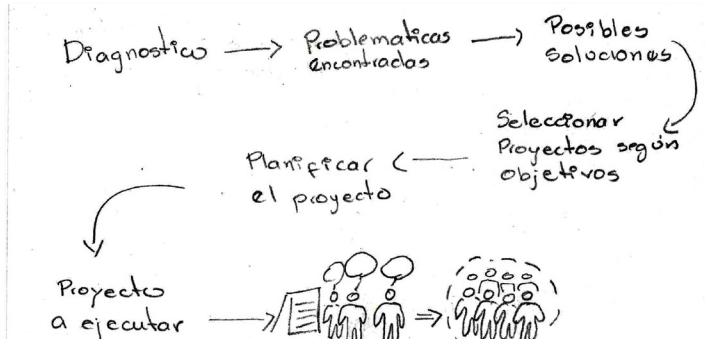 Diagnostico
Problematicas
encontradas
Posibles
soluciones
Seleccionar
Proyectos según
objetivos
Planificar
el proyecto
Proyecto
a ejecutar